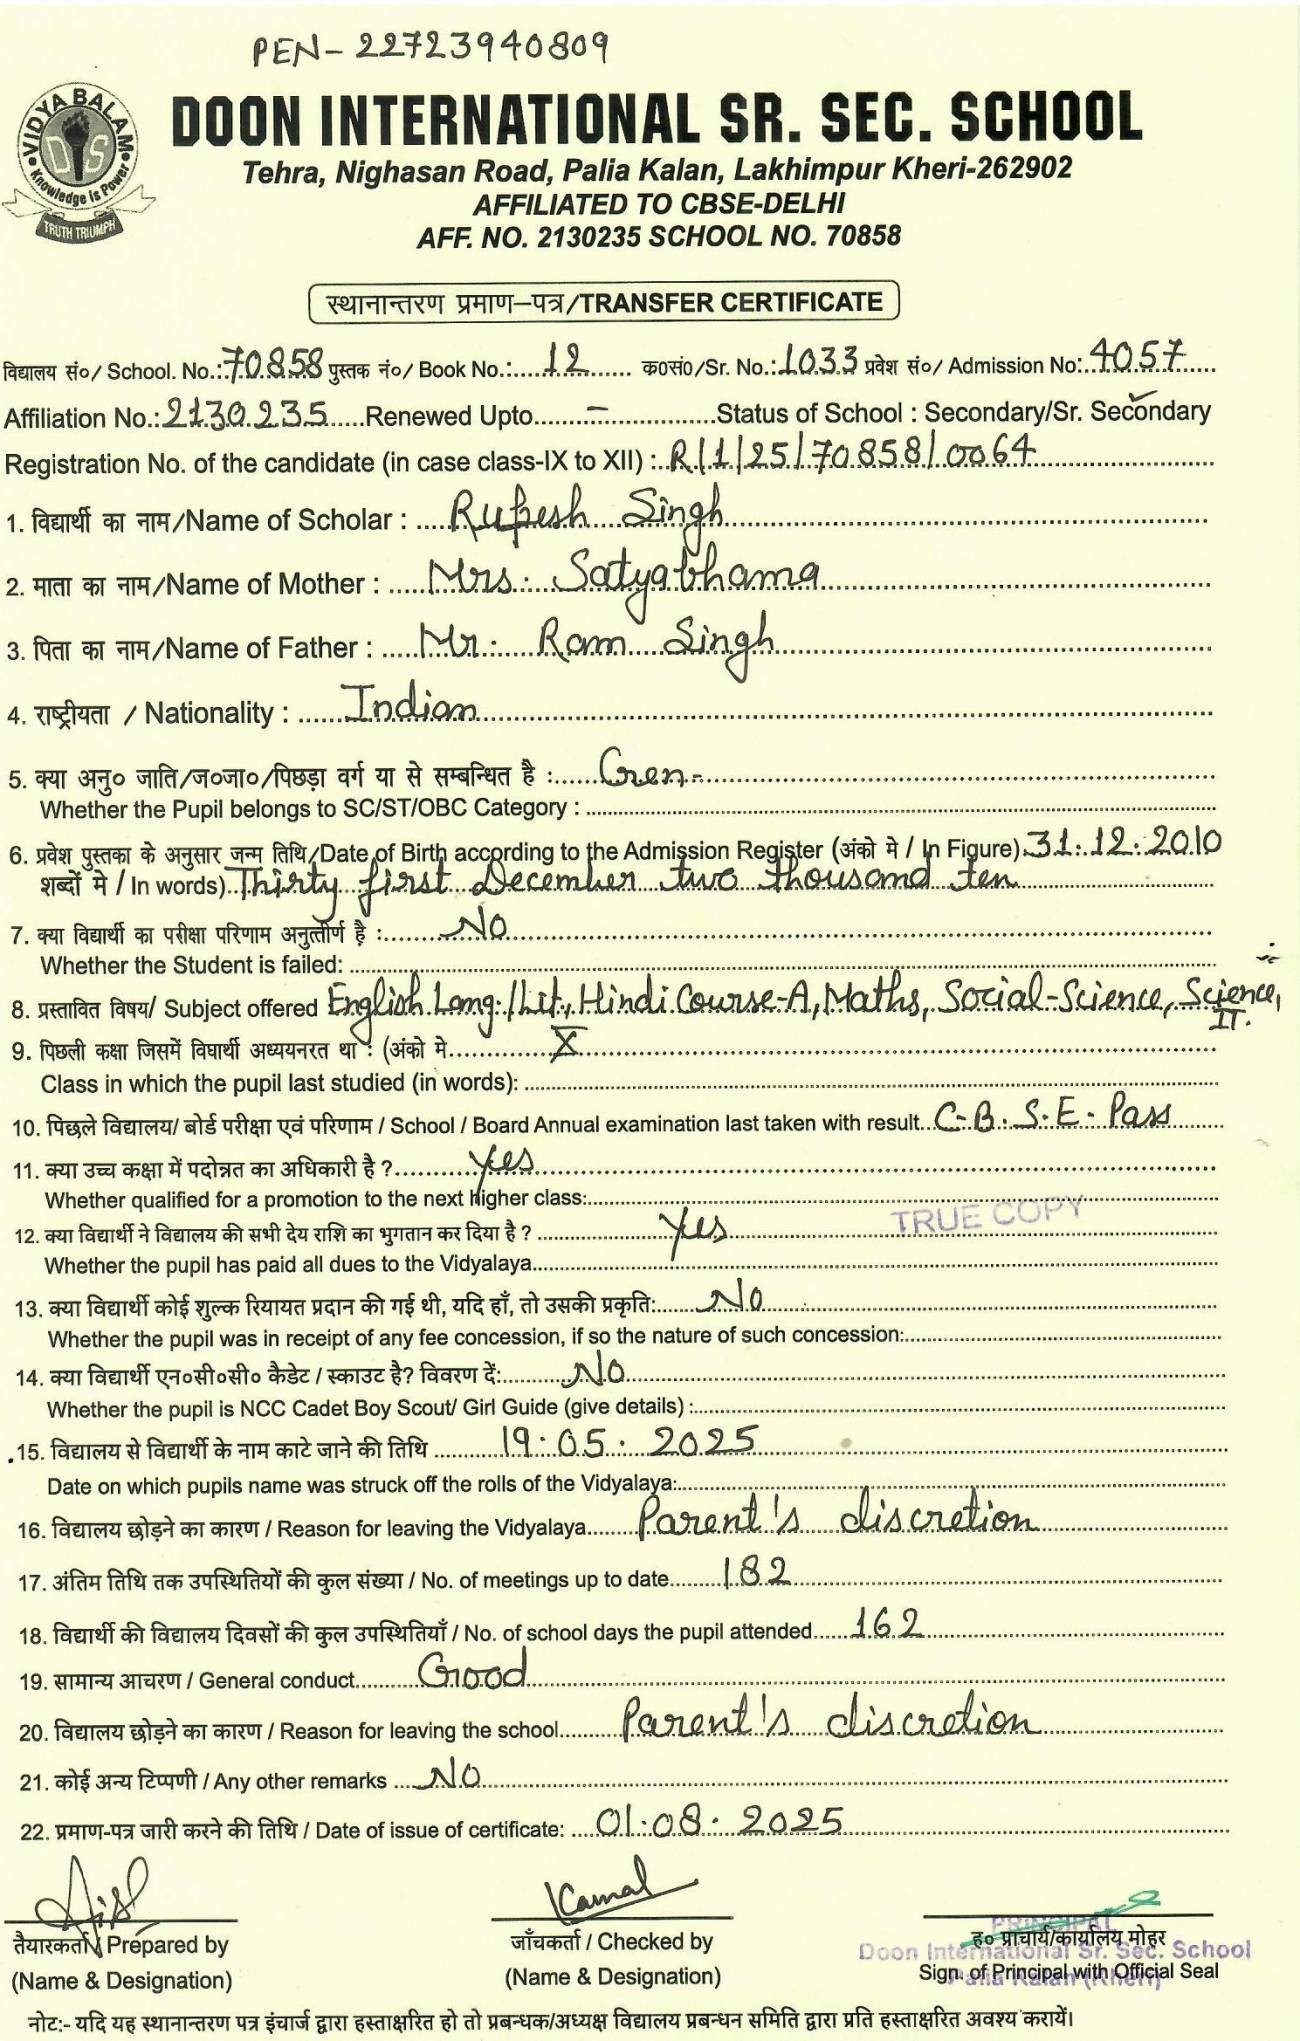 PEN- 22723940809
VIDYA BALAM
DIS
Knowledge Is Power
TRUTH TRIUMPH
DOON INTERNATIONAL SR. SEC. SCHOOL
Tehra, Nighasan Road, Palia Kalan, Lakhimpur Kheri-262902
AFFILIATED TO CBSE-DELHI
AFF. NO. 2130235 SCHOOL NO. 70858
स्थानान्तरण प्रमाण–पत्र/TRANSFER CERTIFICATE
विद्यालय सं०/ School. No.: 70858 पुस्तक नं०/ Book No.: 12 क०सं०/Sr. No.: 1033 प्रवेश सं०/ Admission No: 4057
Affiliation No.: 2130235 Renewed Upto - Status of School : Secondary/Sr. Secondary
Registration No. of the candidate (in case class-IX to XII) : R/1/25/70858/0064
1. विद्यार्थी का नाम/Name of Scholar : Rupesh Singh
2. माता का नाम/Name of Mother : Mrs. Satyabhama
3. पिता का नाम/Name of Father : Mr. Ram Singh
4. राष्ट्रीयता / Nationality : Indian
5. क्या अनु० जाति/ज०जा०/पिछड़ा वर्ग या से सम्बन्धित है : Gen-
Whether the Pupil belongs to SC/ST/OBC Category :
6. प्रवेश पुस्तका के अनुसार जन्म तिथि/Date of Birth according to the Admission Register (अंको मे / In Figure) 31.12.2010
शब्दों मे / In words) Thirty first December two thousand ten
7. क्या विद्यार्थी का परीक्षा परिणाम अनुत्तीर्ण है : NO
Whether the Student is failed:
8. प्रस्तावित विषय/ Subject offered English Lang./Lit., Hindi Course-A, Maths, Social-Science, Science, IT.
9. पिछली कक्षा जिसमें विघार्थी अध्ययनरत था : (अंको मे X
Class in which the pupil last studied (in words):
10. पिछले विद्यालय/ बोर्ड परीक्षा एवं परिणाम / School / Board Annual examination last taken with result C-B.S.E- Pass
11. क्या उच्च कक्षा में पदोन्नत का अधिकारी है ? Yes
Whether qualified for a promotion to the next higher class:
TRUE COPY
12. क्या विद्यार्थी ने विद्यालय की सभी देय राशि का भुगतान कर दिया है ? Yes
Whether the pupil has paid all dues to the Vidyalaya
13. क्या विद्यार्थी कोई शुल्क रियायत प्रदान की गई थी, यदि हाँ, तो उसकी प्रकृति: No
Whether the pupil was in receipt of any fee concession, if so the nature of such concession:
14. क्या विद्यार्थी एन०सी०सी० कैडेट / स्काउट है? विवरण दें: NO
Whether the pupil is NCC Cadet Boy Scout/ Girl Guide (give details) :
15. विद्यालय से विद्यार्थी के नाम काटे जाने की तिथि 19.05.2025
Date on which pupils name was struck off the rolls of the Vidyalaya:
16. विद्यालय छोड़ने का कारण / Reason for leaving the Vidyalaya Parent's discretion
17. अंतिम तिथि तक उपस्थितियों की कुल संख्या / No. of meetings up to date 182
18. विद्यार्थी की विद्यालय दिवसों की कुल उपस्थितियाँ / No. of school days the pupil attended 162
19. सामान्य आचरण / General conduct Good
20. विद्यालय छोड़ने का कारण / Reason for leaving the school Parent's discretion
21. कोई अन्य टिप्पणी / Any other remarks NO
22. प्रमाण-पत्र जारी करने की तिथि / Date of issue of certificate: 01.08.2025
Kamal
PRINCIPAL
तैयारकर्ता / Prepared by जाँचकर्ता / Checked by ह० प्राचार्य/कार्यालय मोहर
Doon International Sr. Sec. School
(Name & Designation) (Name & Designation) Sign. of Principal with Official Seal
Palia Kalan (Kheri)
नोटः- यदि यह स्थानान्तरण पत्र इंचार्ज द्वारा हस्ताक्षरित हो तो प्रबन्धक/अध्यक्ष विद्यालय प्रबन्धन समिति द्वारा प्रति हस्ताक्षरित अवश्य करायें।